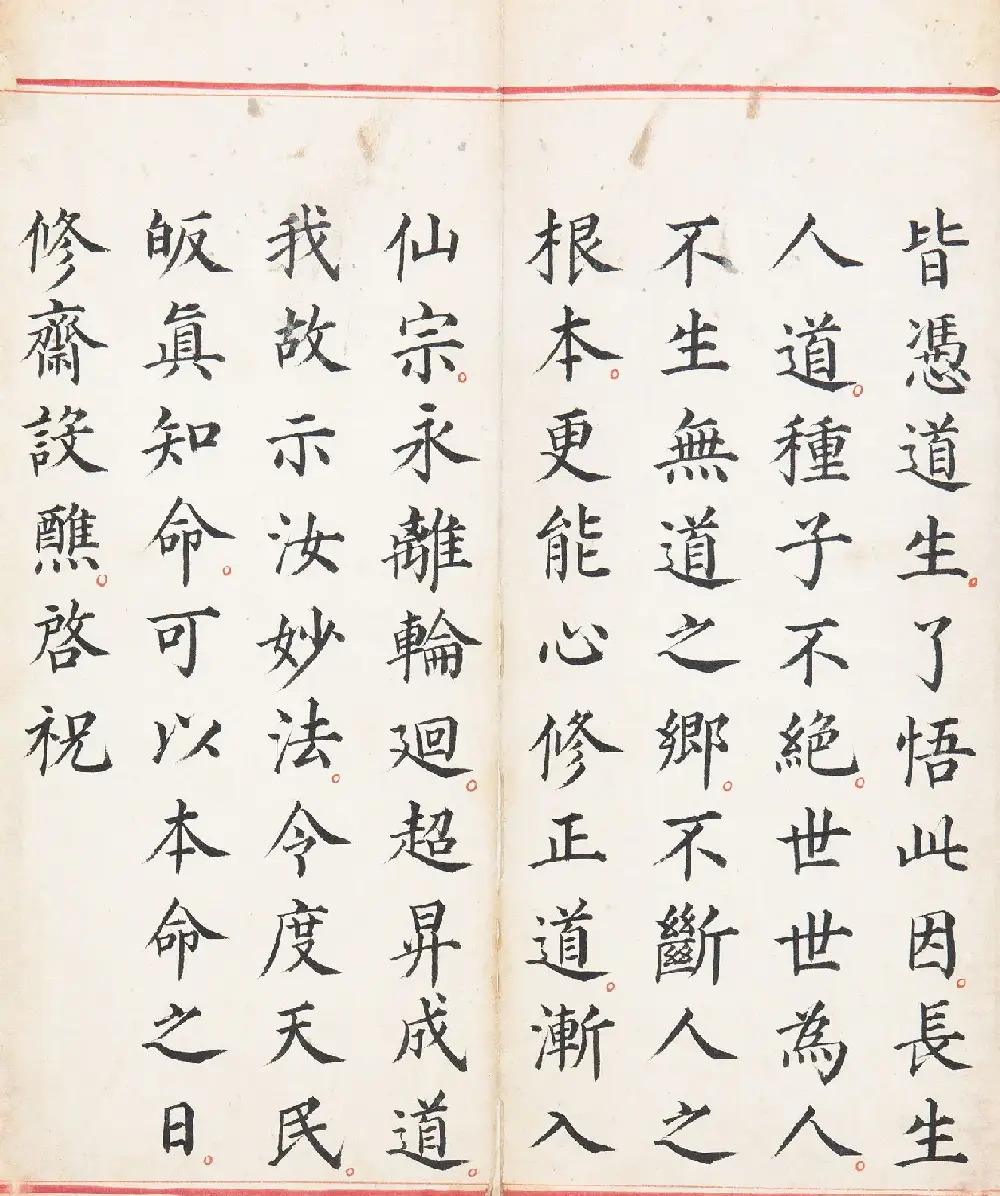 皆憑道生。了悟此因。長生
人道。種子不絕。世世為人。
不生無道之鄉。不斷人之
根本。更能心修正道。漸入
仙宗。永離輪廻。超昇成道。
我故示汝妙法。令度天民。
皈眞知命。可以本命之日。
修齋設醮。啓祝